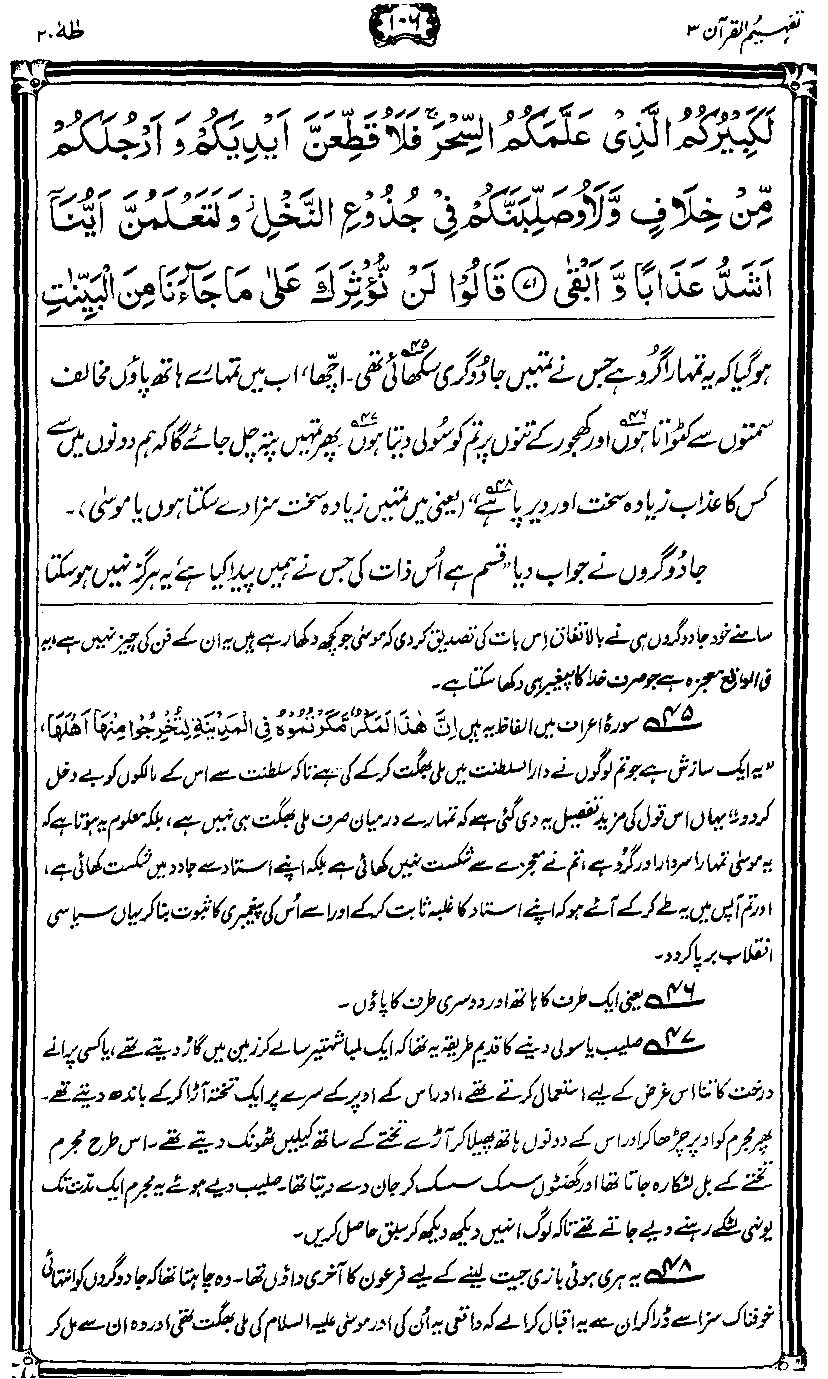 تفہیم القرآن ۳
۱۰۶
طٰهٰ ۲۰
لَكَبِيْرُكُمُ الَّذِىْ عَلَّمَكُمُ السِّحْرَ ۚ فَلَاُ قَطِّعَنَّ اَيْدِيَكُمْ وَ اَرْجُلَكُمْ
مِّنْ خِلَافٍ وَّلَاُوصَلِّبَنَّكُمْ فِىْ جُذُوْعِ النَّخْلِ ۡ وَلَتَعْلَمُنَّ اَيُّنَاۤ
اَشَدُّ عَذَابًا وَّ اَبْقٰى ﴿۷۱﴾ قَالُوْا لَنْ نُّؤْثِرَكَ عَلٰى مَا جَآءَنَا مِنَ الْبَيِّنٰتِ
ہوگیا کہ یہ تمہارا گرو ہے جس نے تمہیں جادوگری سکھائی تھی۴۵۔ اچھا، اب میں تمہارے ہاتھ پاؤں مخالف
سمتوں سے کٹواتا ہوں۴۶ اور کھجور کے تنوں پر تم کو سُولی دیتا ہوں۴۷ پھر تمہیں پتہ چل جائے گا کہ ہم دونوں میں سے
کس کا عذاب زیادہ سخت اور دیرپا ہے۴۸“ (یعنی میں تمہیں زیادہ سخت سزا دے سکتا ہوں یا موسیٰ)۔
جادوگروں نے جواب دیا ”قسم ہے اُس ذات کی جس نے ہمیں پیدا کیا ہے، یہ ہرگز نہیں ہو سکتا
سامنے خود جادوگروں ہی نے بالاتفاق اِس بات کی تصدیق کر دی کہ موسیٰ جو کچھ دکھا رہے ہیں یہ ان کے فن کی چیز نہیں ہے، یہ
فی الواقع معجزہ ہے جو صرف خدا کا پیغمبر ہی دکھا سکتا ہے۔
۴۵ سورۂ اعراف میں الفاظ یہ ہیں اِنَّ هٰذَا لَمَكْرٌ مَّكَرْتُمُوْهُ فِى الْمَدِيْنَةِ لِتُخْرِجُوْا مِنْهَآ اَهْلَهَا،
”یہ ایک سازش ہے جو تم لوگوں نے دارالسلطنت میں ملی بھگت کرکے کی ہے تاکہ سلطنت سے اس کے مالکوں کو بے دخل
کر دو“۔ یہاں اس قول کی مزید تفصیل یہ دی گئی ہے کہ تمہارے درمیان صرف ملی بھگت ہی نہیں ہے، بلکہ معلوم یہ ہوتا ہے کہ
یہ موسیٰ تمہارا سردار اور گرو ہے، تم نے معجزے سے شکست نہیں کھائی ہے بلکہ اپنے استاد سے جادو میں شکست کھائی ہے،
اور تم آپس میں یہ طے کر کے آئے ہو کہ اپنے استاد کا غلبہ ثابت کرکے اور اسے اُس کی پیغمبری کا ثبوت بنا کر یہاں سیاسی
انقلاب برپا کر دو۔
۴۶ یعنی ایک طرف کا ہاتھ اور دوسری طرف کا پاؤں۔
۴۷ صلیب یا سولی دینے کا قدیم طریقہ یہ تھا کہ ایک لمبا شہتیر سا لے کر زمین میں گاڑ دیتے تھے، یا کسی پرانے
درخت کا تنا اس غرض کے لیے استعمال کرتے تھے، اور اس کے اوپر کے سرے پر ایک تختہ آڑا کرکے باندھ دیتے تھے۔
پھر مجرم کو اوپر چڑھا کر اور اس کے دونوں ہاتھ پھیلا کر آڑے تختے کے ساتھ کیلیں ٹھونک دیتے تھے۔ اس طرح مجرم
تختے کے بل لٹکا رہ جاتا تھا اور گھنٹوں سسک سسک کر جان دے دیتا تھا۔ صلیب دیے ہوئے یہ مجرم ایک مدّت تک
یونہی لٹکے رہنے دیے جاتے تھے تاکہ لوگ انہیں دیکھ دیکھ کر سبق حاصل کریں۔
۴۸ یہ ہری ہوئی بازی جیت لینے کے لیے فرعون کا آخری داؤں تھا۔ وہ چاہتا تھا کہ جادوگروں کو انتہائی
خوفناک سزا سے ڈرا کر ان سے یہ اقبال کرالے کہ واقعی یہ اُن کی اور موسیٰ علیہ السلام کی ملی بھگت تھی اور وہ ان سے مل کر